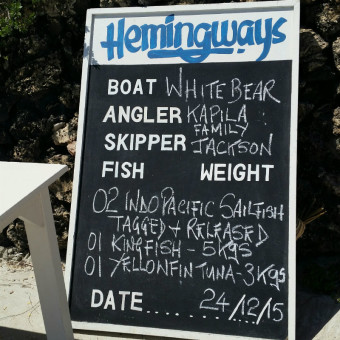 Hemingways
BOAT WHITE BEAR
ANGLER KAPILA
FAMILY
SKIPPER JACKSON
FISH WEIGHT
02 INDO PACIFIC SAILFISH
TAGGED + RELEASED
01 KINGFISH - 5 KGS
01 YELLONFIN TUNA - 3 KGS
DATE........ 24/12/15